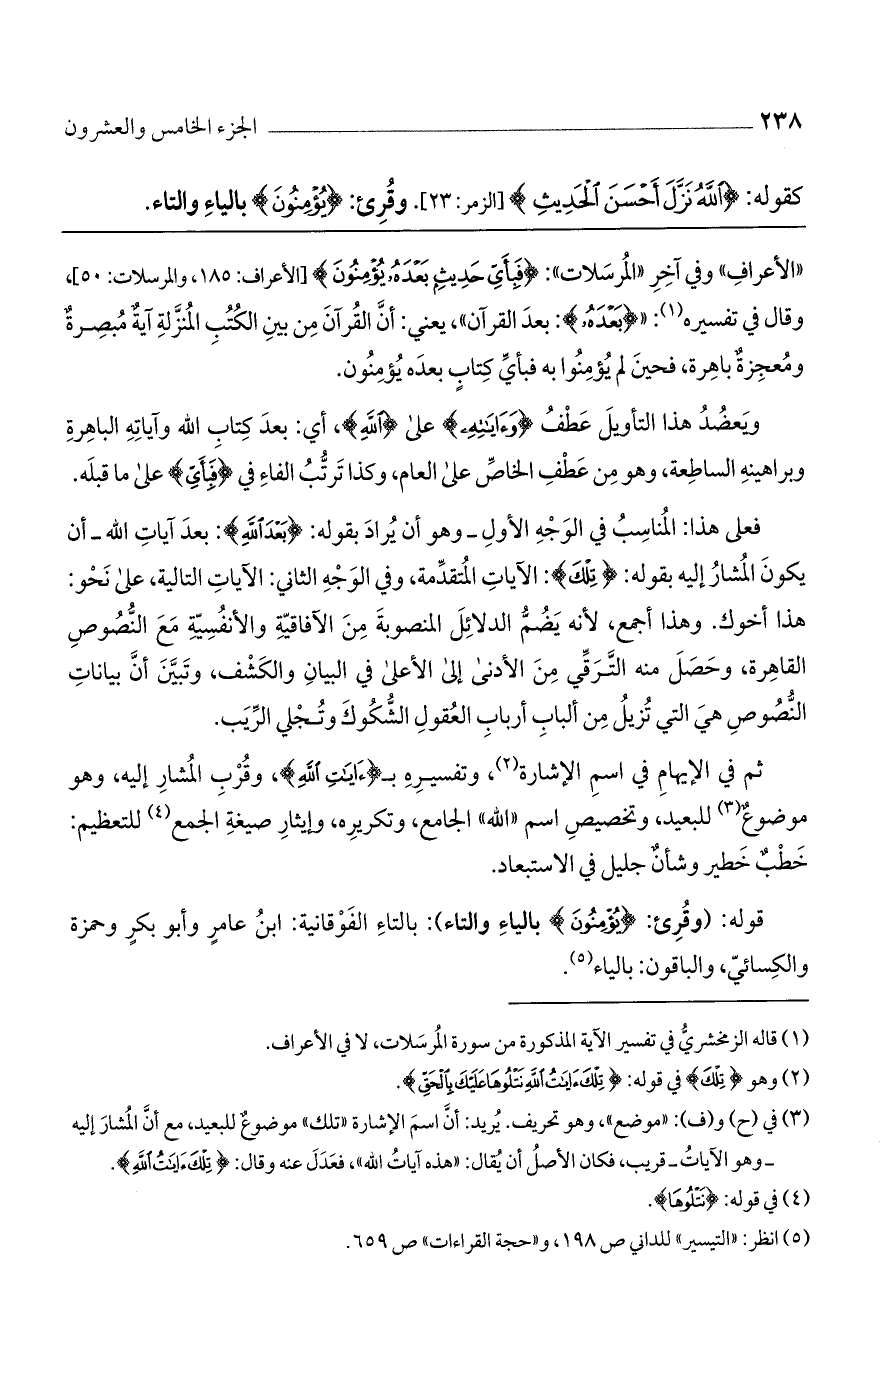 ٢٣٨ ــــــ الجزء الخامس والعشرون
كقوله: ﴿ٱللَّهُ نَزَّلَ أَحْسَنَ ٱلْحَدِيثِ﴾ [الزمر: ٢٣]. وقُرِئ: ﴿يُؤْمِنُونَ﴾ بالياءِ والتاء.
«الأعرافِ» وفي آخِرِ «المُرسَلات»: ﴿فَبِأَيِّ حَدِيثٍ بَعْدَهُۥ يُؤْمِنُونَ﴾ [الأعراف: ١٨٥، والمرسلات: ٥٠]،
وقال في تفسيره(١): «﴿بَعْدَهُۥ﴾: بعدَ القرآن»، يعني: أنَّ القُرآنَ مِن بينِ الكُتُبِ المُنزَّلةِ آيةٌ مُبصِرةٌ
ومُعجِزةٌ باهِرة، فحينَ لم يُؤمِنُوا به فبأيِّ كِتابٍ بعدَه يُؤمِنُون.
ويَعضُدُ هذا التأويلَ عَطْفُ ﴿وَءَايَـٰتِهِۦ﴾ علىٰ ﴿ٱللَّهِ﴾، أي: بعدَ كِتابِ الله وآياتِهِ الباهِرةِ
وبراهينهِ الساطِعة، وهو مِن عَطْفِ الخاصِّ علىٰ العام، وكذا تَرتُّبُ الفاءِ في ﴿فَبِأَيِّ﴾ علىٰ ما قبلَه.
فعلى هذا: المُناسِبُ في الوَجْهِ الأولِ ـ وهو أن يُرادَ بقوله: ﴿بَعْدَ ٱللَّهِ﴾: بعدَ آياتِ الله ـ أن
يكونَ المُشارُ إليه بقوله: ﴿تِلْكَ﴾: الآياتِ المُتقدِّمة، وفي الوَجْهِ الثاني: الآياتِ التالية، علىٰ نَحْو:
هذا أخوك. وهذا أجمع، لأنه يَضُمُّ الدلائِلَ المنصوبةَ مِنَ الآفاقيّةِ والأنفُسِيّةِ مَعَ النُّصُوصِ
القاهِرة، وحَصَلَ منه التَّرَقِّي مِنَ الأدنىٰ إلىٰ الأعلىٰ في البيانِ والكَشْف، وتَبيَّنَ أنَّ بياناتِ
النُّصُوصِ هيَ التي تُزيلُ مِن ألبابِ أربابِ العُقولِ الشُّكُوكَ وتُـجْلي الرِّيَب.
ثم في الإبهامِ في اسمِ الإشارة(٢)، وتفسيـرِهِ بـ﴿ءَايَـٰتِ ٱللَّهِ﴾، وقُرْبِ المُشارِ إليه، وهو
موضوعٌ(٣) للبعيد، وتخصيصِ اسم «الله» الجامع، وتكريرِه، وإيثارِ صيغةِ الجمع(٤) للتعظيم:
خَطْبٌ خَطير وشأنٌ جليل في الاستبعاد.
قوله: (وقُرِئ: ﴿يُؤْمِنُونَ﴾ بالياءِ والتاء): بالتاءِ الفَوْقانية: ابنُ عامرٍ وأبو بكرٍ وحمزة
والكِسائيّ، والباقون: بالياء(٥).
(١) قاله الزمخشريُّ في تفسير الآية المذكورة من سورة المُرسَلات، لا في الأعراف.
(٢) وهو ﴿تِلْكَ﴾ في قوله: ﴿تِلْكَ ءَايَـٰتُ ٱللَّهِ نَتْلُوهَا عَلَيْكَ بِٱلْحَقِّ﴾.
(٣) في (ح) و(ف): «موضع»، وهو تحريف. يُريد: أنَّ اسمَ الإشارة «تلك» موضوعٌ للبعيد، مع أنَّ المُشارَ إليه
ـ وهو الآياتُ ـ قريب، فكان الأصلُ أن يُقال: «هذه آياتُ الله»، فعَدَلَ عنه وقال: ﴿تِلْكَ ءَايَـٰتُ ٱللَّهِ﴾.
(٤) في قوله: ﴿نَتْلُوهَا﴾.
(٥) انظر: «التيسير» للداني ص ١٩٨، و«حجة القراءات» ص ٦٥٩.